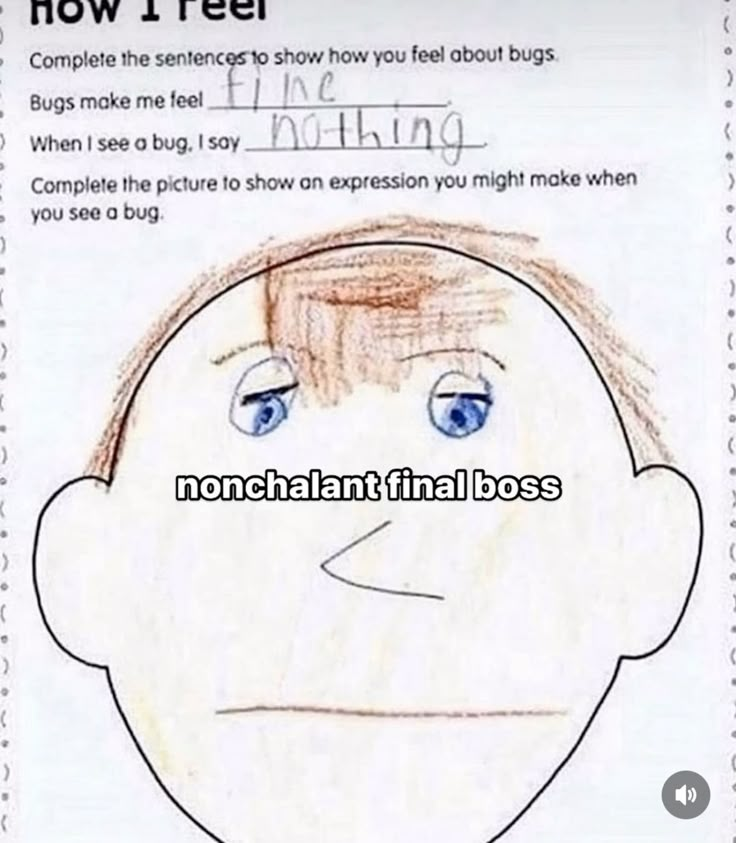 How I Feel
Complete the sentences to show how you feel about bugs.
Bugs make me feel fine.
When I see a bug, I say nothing.
Complete the picture to show an expression you might make when
you see a bug.
nonchalant final boss